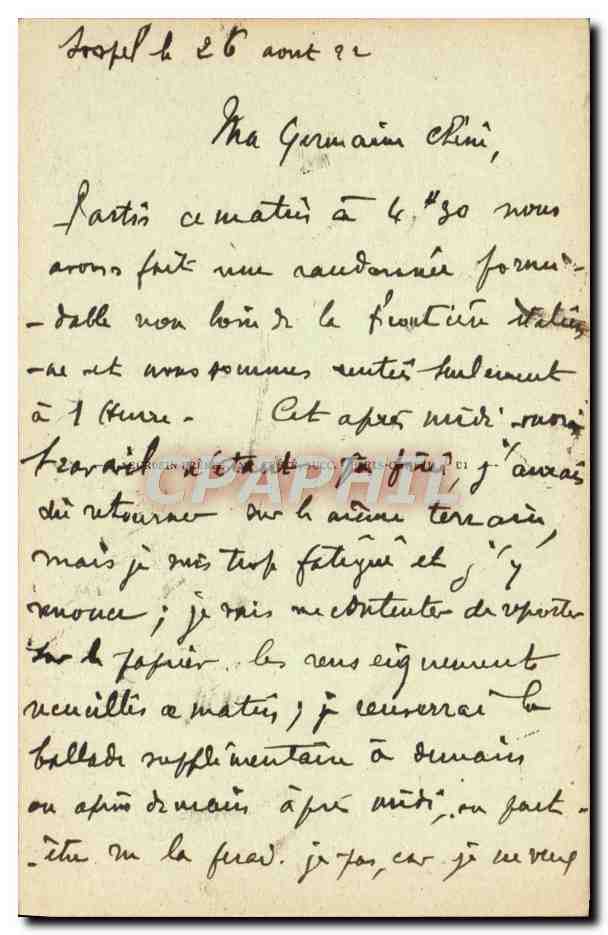 Sospel le 26 aout 22
Ma Germaine chérie,
Partis ce matin à 4 h 30 nous
avons fait une randonnée formi-
-dable non loin de la frontière italien
-ne et nous sommes rentrés seulement
à 1 heure. Cet après midi mon
travail n'étant pas fini, j'aurais
CPAPHIL
dû retourner sur le même terrain,
mais je suis trop fatigué et j'y
renonce ; je vais me contenter de reporter
sur le papier les renseignements
recueillis ce matin ; je la
ballade supplémentaire à demain
ou après demain après midi, ou peut-
-être ne la ferai-je pas, car je ne veux